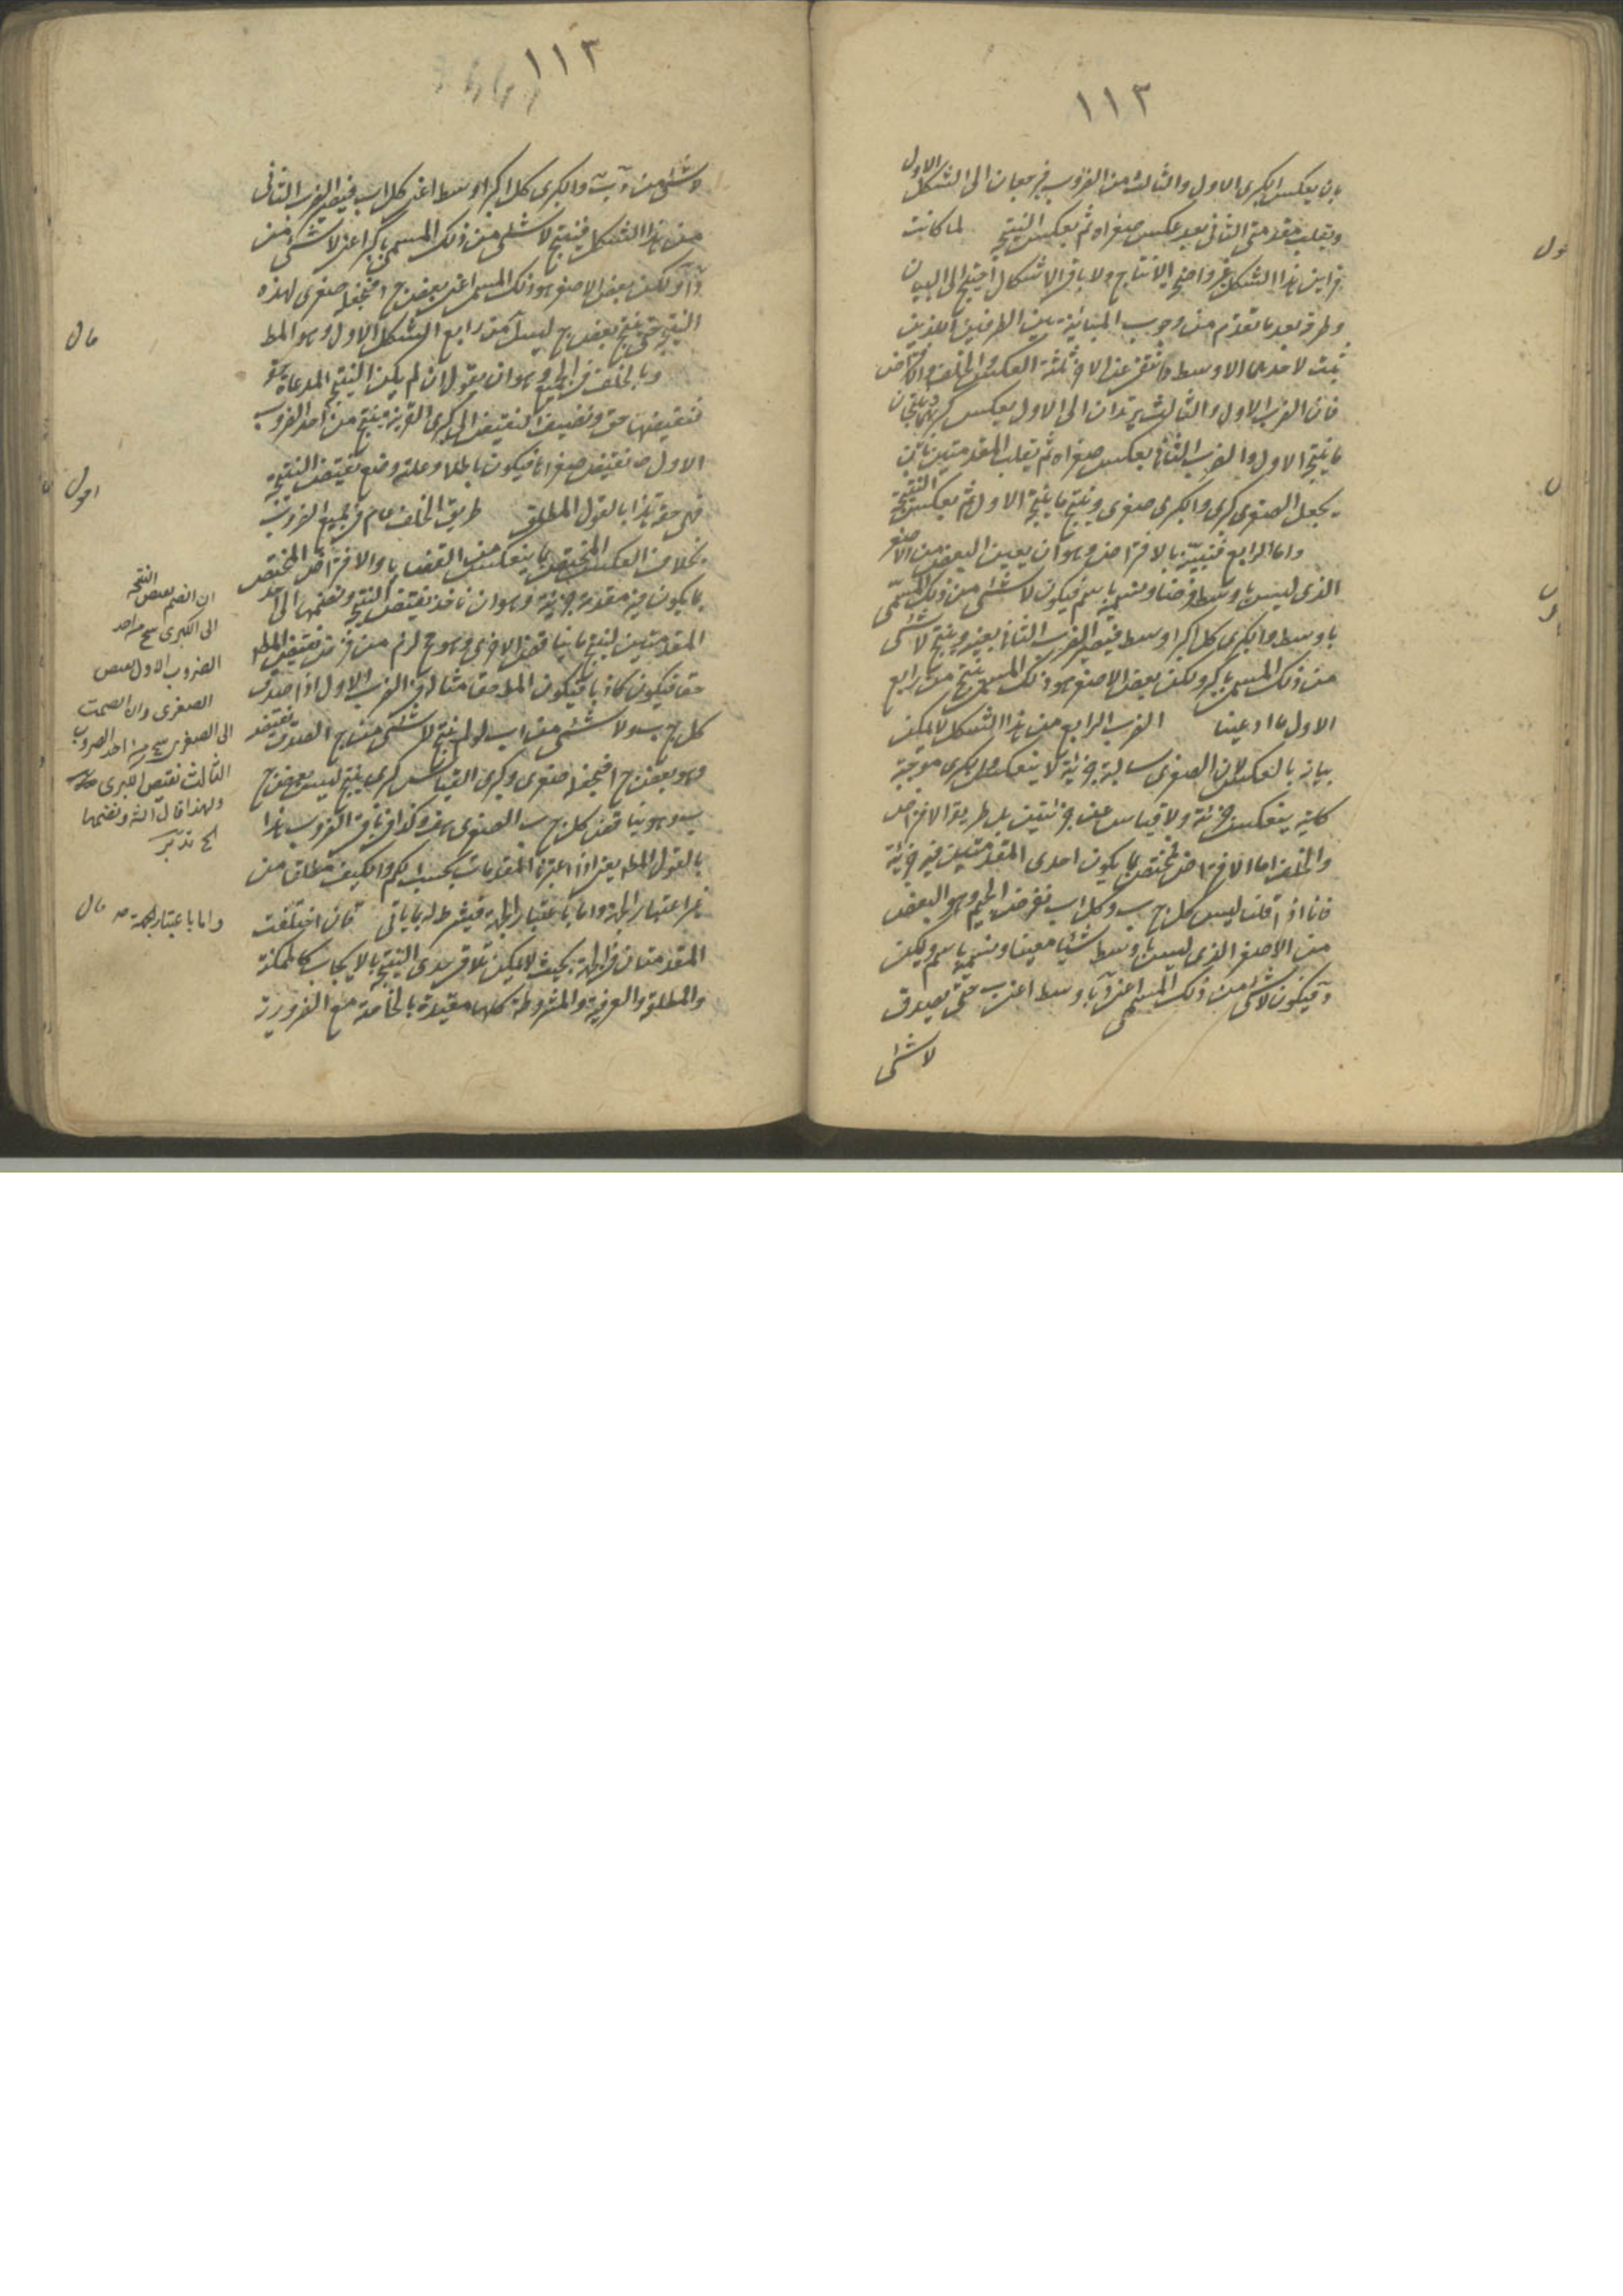 ١١٣
بان يعكس الكبرى الاول والثالث من الضروب فيرجعان الى الشكل الاول
وبقلب مقدمتى الثانى بعد عكس صغراه ثم بعكس النتيجة لما كانت
قراين هذا الشكل غير واضح الانتاج ولا باقى الاشكال احتيج الى البيان
وطرقه بعد ما تقدم من وجوب المباينة بين الطرفين الذين
ثبت لاحدهما الاوسط وانتفى عن الاخر ثلثة العكس والخلف والافتراض
فان الضرب الاول والثالث يرتدان الى الاول بعكس كبراهما
ما ينتج الاول والضرب الثانى بعكس صغراه ثم بقلب المقدمتين بان
يجعل الصغرى كبرى والكبرى صغرى وينتج ما ينتجه الاول ثم بعكس النتيجة
واما الرابع فنبينه بالافتراض وهو ان يعين البعض من الاصغر
الذى ليس باوسط فرضا ونسميه باسم فيكون لا شئ من ذلك المسمى
باوسط والكبرى كل اكبر اوسط فيصير الضرب الثانى بعينه وينتج لا شئ
من ذلك المسمى باكبر ولكن بعض الاصغر هو ذلك المسمى ينتج من رابع
الاول ما ادعينا الضرب الرابع من هذا الشكل لا يمكن
بيانه بالعكس لان الصغرى سالبة جزئية لا ينعكس والكبرى موجبة
كلية ينعكس جزئية ولا قياس عن جزئيتين بل طريقة الافتراض
والخلف اما الافتراض فمختص بما يكون احدى المقدمتين فيه جزئية
فانا اذا قلنا ليس كل ج ب وكل ا ب نفرض الجيم وهو البعض
من الاصغر الذى ليس باوسط شيئا معينا ونسميه باسم وليكن
د فيكون لا شئ من ذلك المسمى اعنى د باوسط اعنى ب حتى يصدق
لا شئ
ول
١١٣
لا شئ من د ب والكبرى كل اكبر اوسط اعنى كل ا ب فيصير الضرب الثانى
من هذا الشكل فينتج لا شئ من ذلك المسمى باكبر اعنى لا شئ من
د ا ولكن بعض الاصغر هو ذلك المسمى اعنى بعض ج د فنجعله صغرى لهذه
النتيجة حتى ينتج بعض ج ليس ا من رابع الشكل الاول وهو المط
وبالخلف فى الجميع وهو ان يقول ان لم يكن النتيجة المدعاة حقة
فنقيضها حق ونضيف النقيض الى كبرى القرينة ينتج من احد الضروب
الاول نقيض صغراها فيكون باطلا وعلته وضع نقيض النتيجة
فهى حقة هذا بالقول المطلق طريق الخلف عام فى جميع الضروب
بخلاف العكس المختص بما ينعكس من القضايا والافتراض المختص
بما يكون فيه مقدمة جزئية وهو ان ناخذ نقيض النتيجة ونضمها الى احد
المقدمتين لينتج ما يناقض الاخرى وهو ح لزم من فرض نقيض المط
حقا فيكون كاذبا فيكون المط حقا مثاله فى الضرب الاول اذا صدق
كل ج ب ولا شئ من ا ب لو لم ينتج لا شئ من ج ا لصدق نقيضه
وهو بعض ج ا فيجعلها صغرى وكبرى القياس كبرى ينتج ليس بعض ج
ب وهو يناقض كل ج ب الصغرى هف وكذا فى باقى الضروب هذا
بالقول المط يعنى اذا اعتبرنا المقدمات بحسب الكم والكيف مطلقا من
غير اعتبار الجهة واما باعتبار الجهة فيشرط له ما ياتى فان اختلفت
المقدمتان فى الجهة بحيث لا يمكن تلاقى حدى النتيجة بالايجاب كالممكنة
والمطلقة والعرفية والمشروطة كلها مقيدة بالخاصة مع الضرورية
قال
اقول
ان انضم نقيض النتيجة
الى الكبرى ينتج من احد
الضروب الاول نقيض
الصغرى وان انضمت
الى الصغرى ينتج من احد الضروب
الثالث نقيض الكبرى
ولهذا قال الش ونضمها
الخ تدبر
واما باعتبار الجهة قال